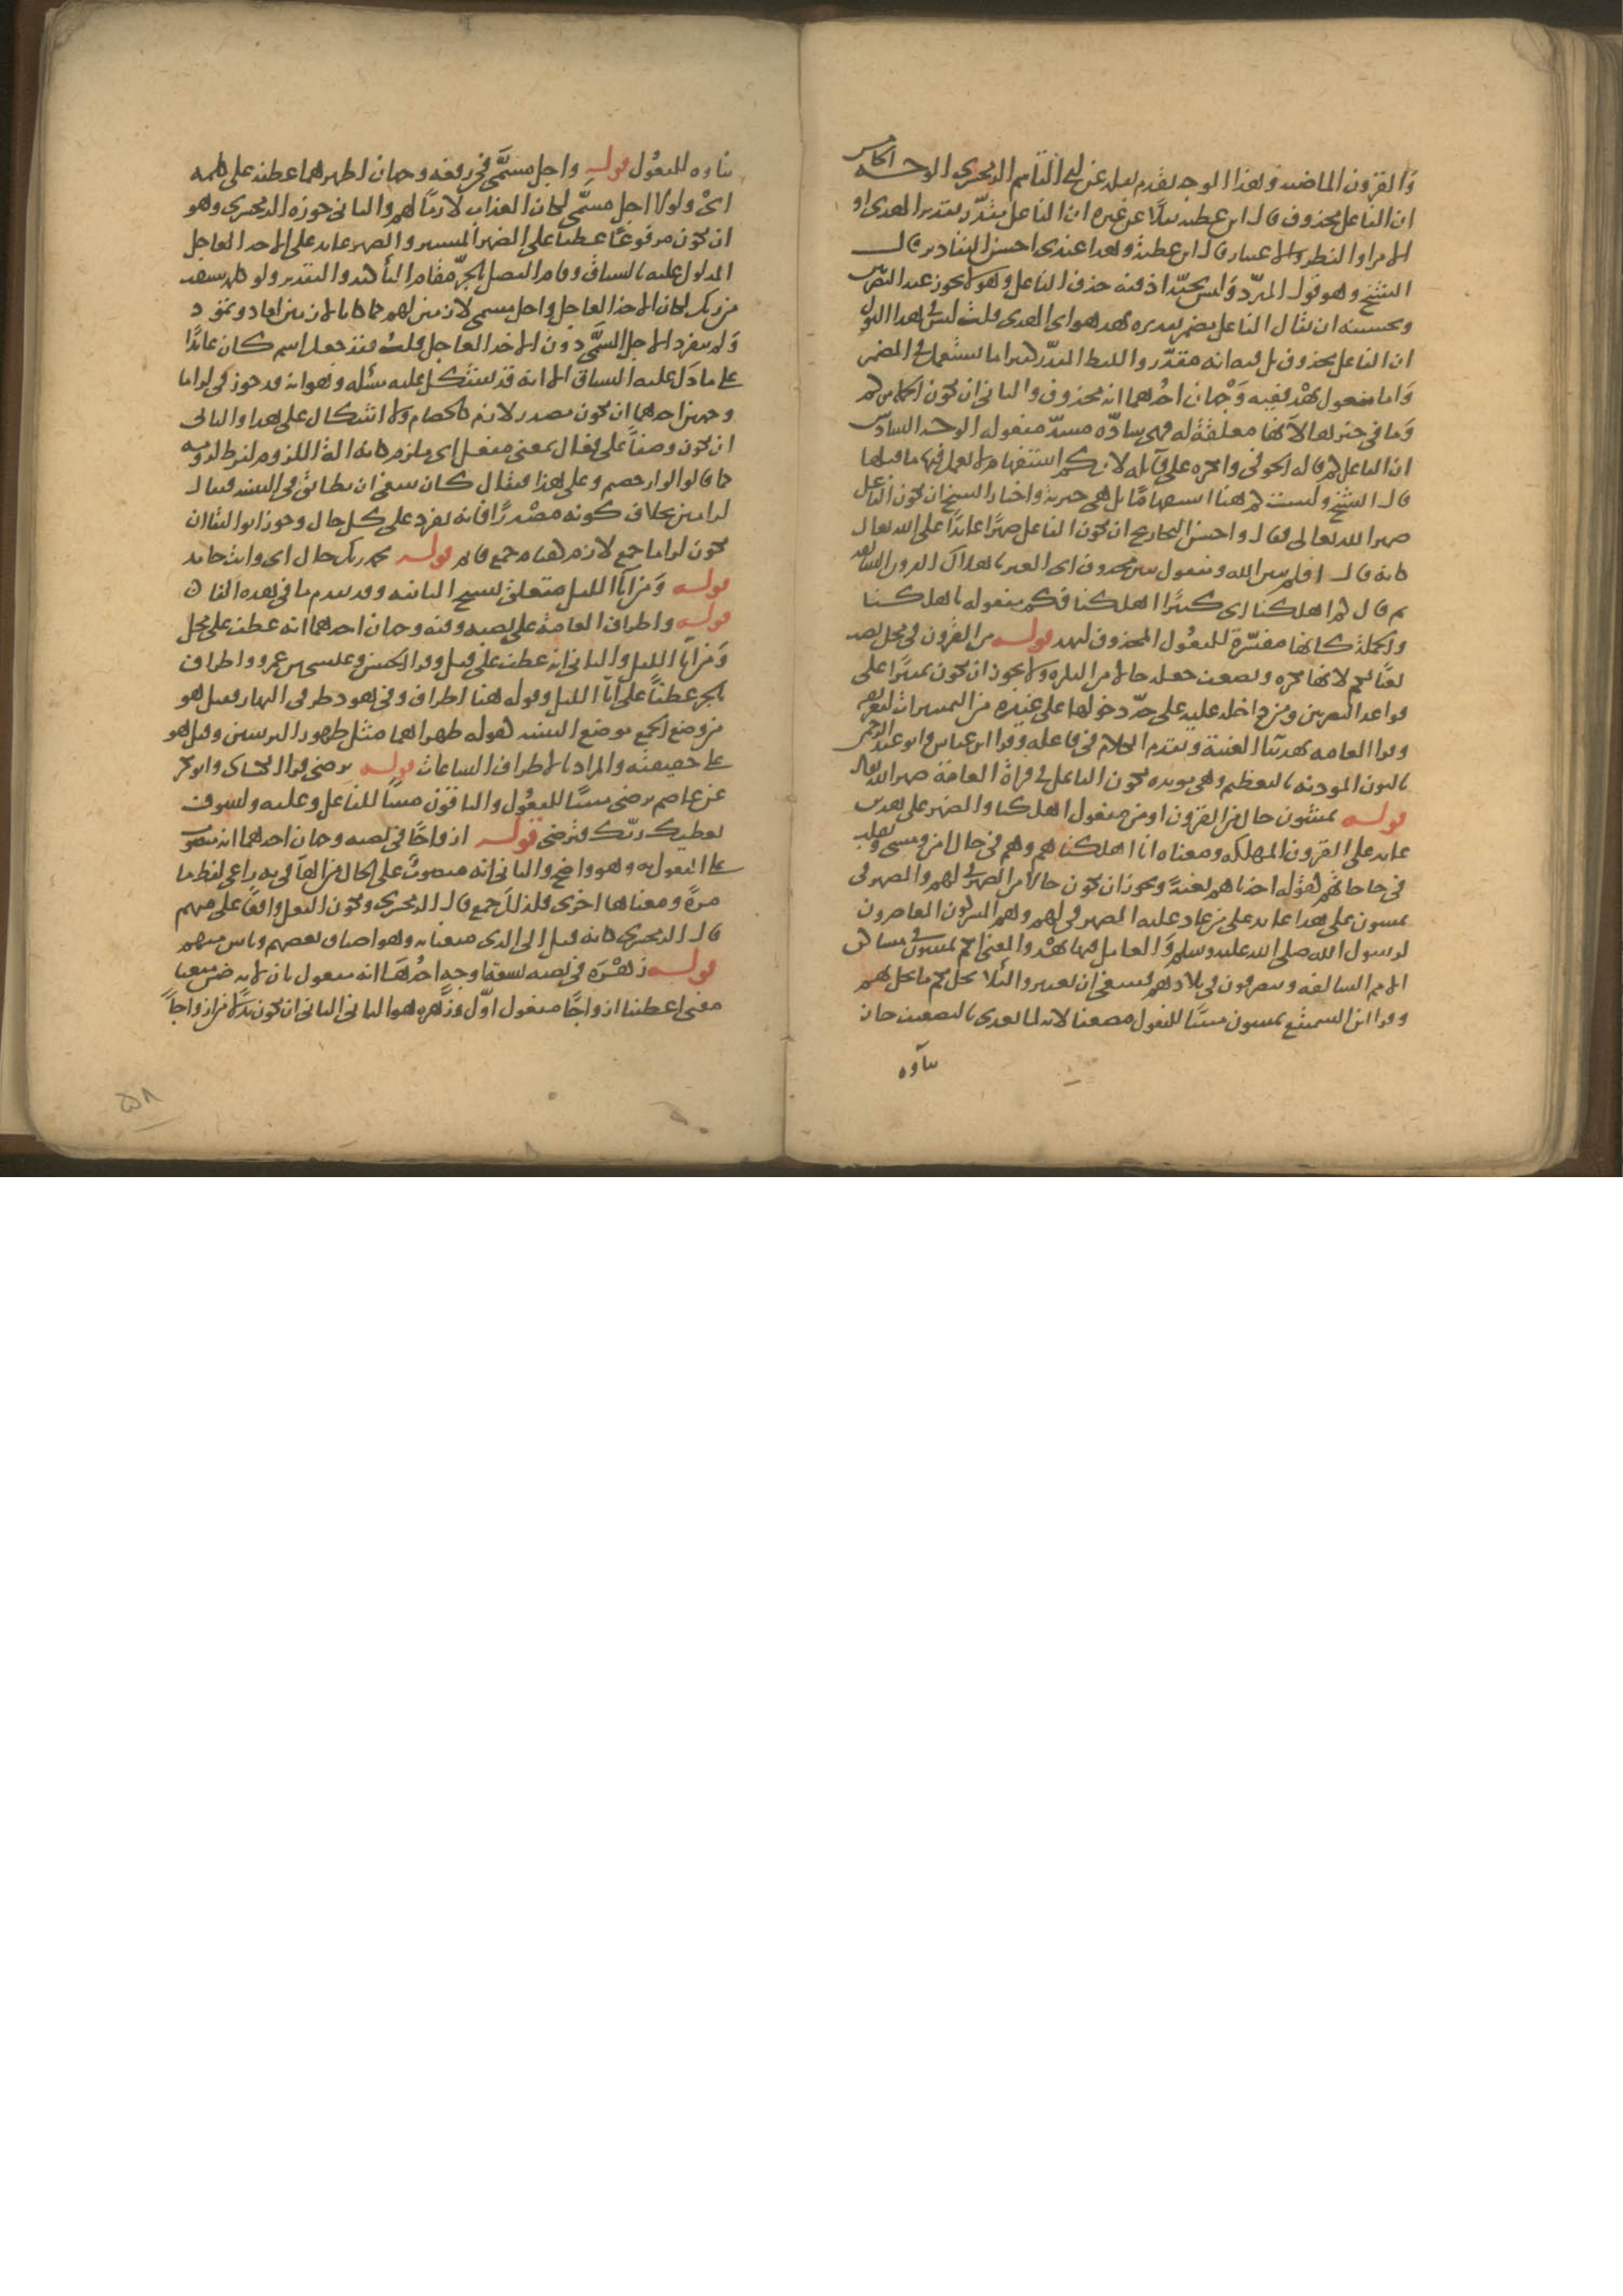 والقرون الماضية وهذا الوجه تقدم نقله عن ابي القاسم الزمخشري الوجه الخامس
ان الفاعل محذوف قال ابن عطية نقلا عن غيره ان الفاعل مقدر تقديره الهدى او
الامر او النظر والاعتبار قال ابن عطية وهذا عندي احسن التقادير قال
الشيخ وهو قول المبرد وليس بجيد اذ فيه حذف الفاعل وهو لا يجوز عند البصريين
وتحسينه ان يقال الفاعل مضمر تقديره يهد هو اي الهدى قلت ليس في هذا القول
ان الفاعل محذوف بل فيه انه مقدر واللفظ المقدر كثيرا ما يستعمل في المضمر
واما مفعول يهد ففيه وجهان احدهما انه محذوف والثاني ان يكون الجملة من كم
وما في حيزها لانها معلقة له فهي سادة مسد مفعوله الوجه السادس
ان الفاعل كم قاله الحوفي وانكره على قائله لان كم استفهام لا يعمل فيها ما قبلها
قال الشيخ وليست كم هنا استفهاما بل هي خبرية واختار الشيخ ان يكون الفاعل
ضمير الله تعالى فقال واحسن التخاريج ان يكون الفاعل ضميرا عائدا على الله تعالى
كانه قال افلم يبين الله ومفعول يبين محذوف اي العبر باهلاك القرون السابقة
ثم قال كم اهلكنا اي كثيرا اهلكنا فكم مفعوله باهلكنا
والجملة كانها مفسرة للمفعول المحذوف ليهد قوله من القرون في محل نصب
نعتا لكم لانها نكرة ويضعف جعله حالا من النكرة ولا يجوز ان يكون تمييزا على
قواعد البصريين ومن داخلة عليه على حد دخولها على غيره من التمييزات لتعريفه
وقرا العامة يهد بياء الغيبة وتقدم الكلام في فاعله وقرا ابن عباس وابو عبد الرحمن
بالنون المؤذنة بالتعظيم وهي مؤيدة لكون الفاعل في قراة العامة ضمير الله تعالى
قوله يمشون حال من القرون او من مفعول اهلكنا والضمير على هذين
عائد على القرون المهلكة ومعناه انا اهلكناهم وهم في حال امن ومشي وتقلب
في حاجاتهم كقوله اخذناهم بغتة ويجوز ان يكون حالا من الضمير في لهم والضمير في
يمشون على هذا عائد على من عاد عليه الضمير في لهم وهم المشركون المعاصرون
لرسول الله صلى الله عليه وسلم والعامل فيها يهد والمعنى انكم تمشون في مساكن
الامم السالفة وتتصرفون في بلادهم فينبغي ان تعتبروا لئلا يحل بكم ما حل بهم
وقرا ابن السميفع يمشون مبنيا للمفعول مضعفا لانه لما تعدى بالتضعيف جاز
بناوه
بناوه للمفعول قوله واجل مسمى في رفعه وجهان اظهرهما عطفه على كلمة
اي ولولا اجل مسمى لكان العذاب لازما لهم والثاني جوزه الزمخشري وهو
ان يكون مرفوعا عطفا على الضمير المستتر والضمير عائد على الاخذ العاجل
المدلول عليه بالسياق وقام الفصل بالجر مقام التأكيد والتقدير ولولا كلمة سبقت
من ربك لكان الاخذ العاجل واجل مسمى لازمين لهم كما كانا لازمين لعاد وثمود
ولم ينفرد الاجل المسمى دون الاخذ العاجل قلت فقد جعل اسم كان عائدا
على ما دل عليه السياق الا انه قد يستشكل عليه مسئلة وهو انه قد جوز في لزاما
وجهين احدهما ان يكون مصدر لازم كالخصام ولا اشكال على هذا والثاني
ان يكون وصفا على فعال بمعنى مفعل اي ملزم كانه الة اللزوم لفرط لزومه
كما قالوا لزاز خصم وعلى هذا فيقال كان ينبغي ان يطابق في التثنية فيقال
لزامين بخلاف كونه مصدرا فانه يفرد على كل حال وجوز ابو البقاء ان
يكون لزاما جمع لازم كقيام جمع قائم قوله بحمد ربك حال اي وانت حامد
قوله ومن آناء الليل متعلق بسبح الثانية وقد تقدم ما في هذه الفاء
قوله واطراف العامة على نصبه وفيه وجهان احدهما انه عطف على محل
ومن آناء الليل والثاني انه عطف على قبل وقرا الحسن وعيسى بن عمر واطراف
بالجر عطفا على آناء الليل وقوله هنا اطراف وفي هود طرفي النهار فقيل هو
من وضع الجمع موضع التثنية كقوله ظهراهما مثل ظهور الترسين وقيل هو
على حقيقته والمراد بالاطراف الساعات قوله ترضى قرا الكسائي وابو بكر
عن عاصم ترضى مبنيا للمفعول والباقون مبنيا للفاعل وعليه ولسوف
يعطيك ربك فترضى قوله ازواجا في نصبه وجهان احدهما انه منصوب
على المفعول به وهو واضح والثاني انه منصوب على الحال من الهاء في به راعى لفظ ما
مرة ومعناها اخرى فلذلك جمع قال الزمخشري ويكون الفعل واقعا على منهم
قال الزمخشري كانه قيل الى الذي متعنا به وهو اصناف بعضهم وناس منهم
قوله زهرة في نصبه تسعة اوجه احدها انه مفعول ثان لانه ضمن متعنا
معنى اعطينا ازواجا مفعول اول وزهرة هو الثاني الثاني ان يكون بدلا من ازواجا
٥٨